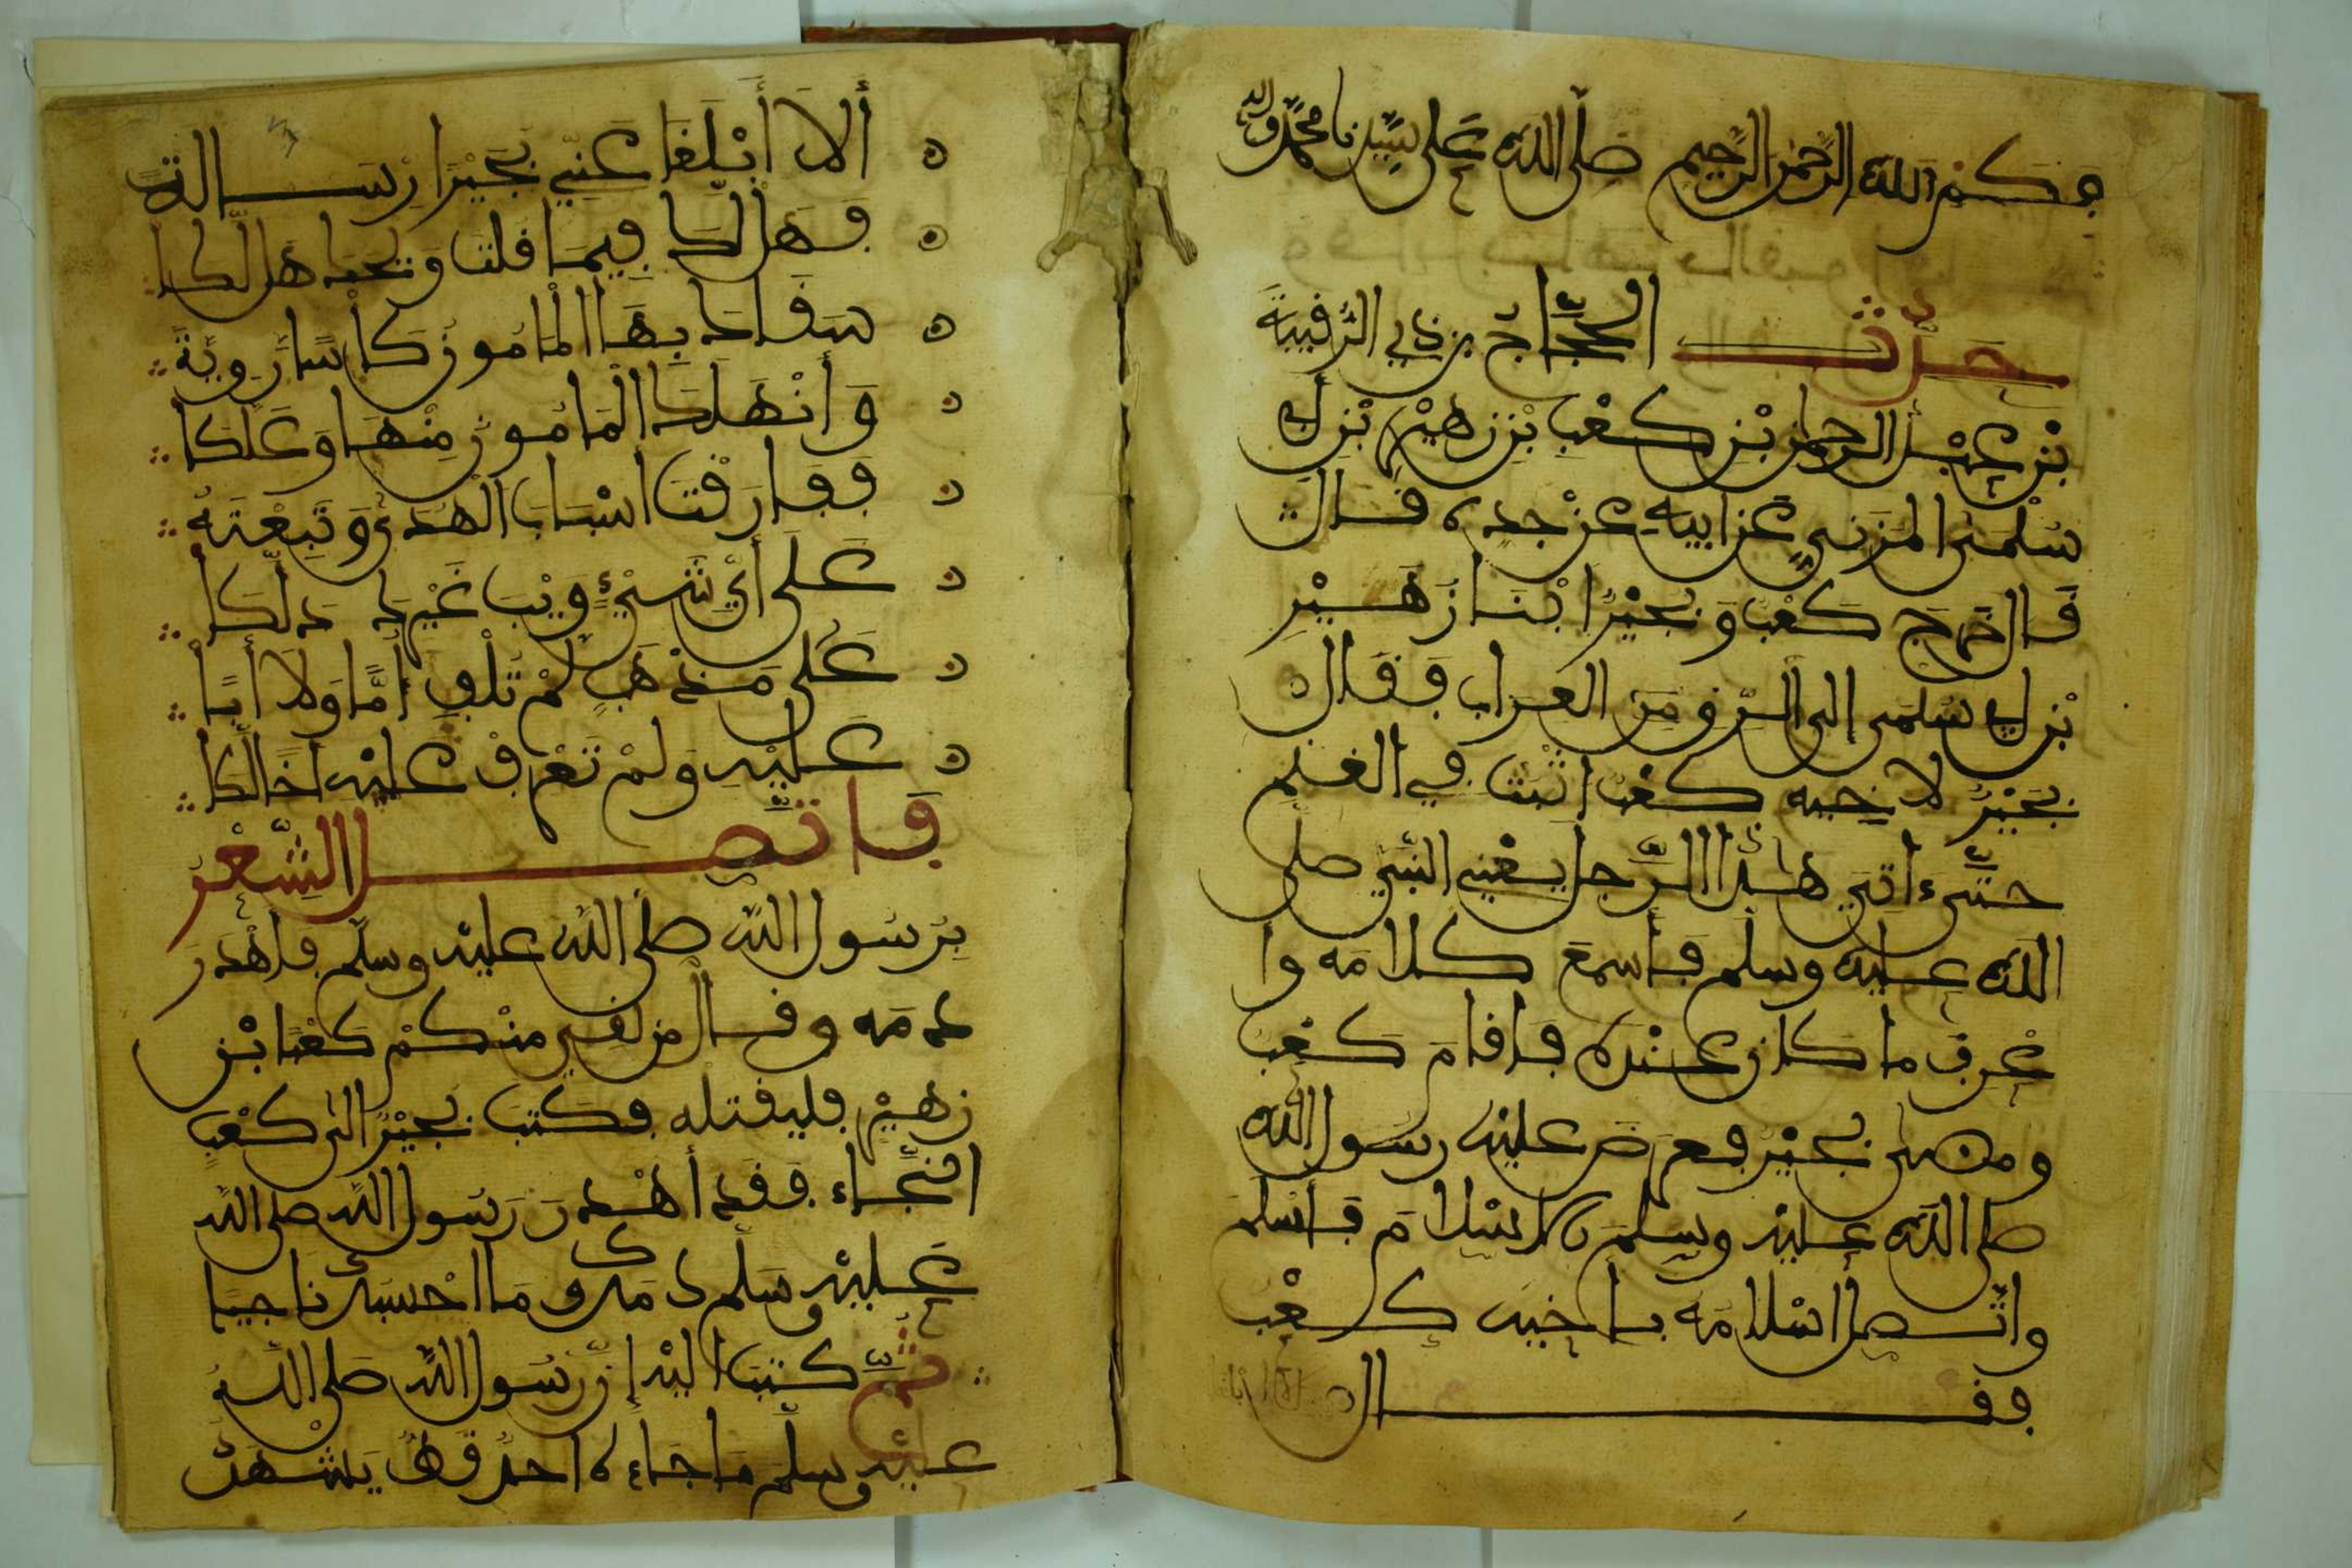 بسم الله الرحمن الرحيم صلى الله على سيدنا محمد واله
حدثـــنا الحجاج بن ذي الرقيبة
بْن عبد الرحمن بْن كعْب بْن زهيْر بْن أبي
سُلْمى المزني عن ابيه عن جده قال
قال خرج كعْب وبجيْرًا ابْنا زهيْر
بْن أبي سلمى الى ابرق العزاب فقال
بجيْرٌ لاخيه كعْب اثبت في الغنم
حتى ءاتي هذا الرجل يعْني النبي صلى
الله عليه وسلم فأسمع كلامه وا
عْرف ما كان عنْده فاقام كعْب
ومضى بجيْر فعرض عليْه رسول الله
صلى الله عليْه وسلم الاسْلام فاسْلم
واتصل اسْلامه باخيه كعْب
فقـــــال
ألا أبْلغا عنّي بجيْرًا رســالة
فهل لكا فيما قلت ويحك هل لكا
سقاك بها المامون كأسا روية
وأنْهلك المامون منْها وعلكا
ففارقْت اسْباب الْهدى وتبعْته
على أيّ شيْءٍ ويْب غيْرك دلّكا
على مذهبٍ لمْ تلْف أمًّا ولا أبًا
عليْه ولمْ تعْرفْ عليْه أخًا لكا
فاتصـــل الشّعْر
برسول الله صلى الله عليْه وسلم فأهْدر
دمه وقال من لقي منْكمْ كعْبا بْن
زهيْر فليقتله فكتب بجيْرٌ الى كعْبٍ
النجاء فقد أهْدر رسول الله صلى الله
عليْه وسلم دمك وما احْسبك ناجيا
ثم كتب اليْه إنّ رسول الله صلى الله
عليْه وسلم ما جاءه احد قط يشهد